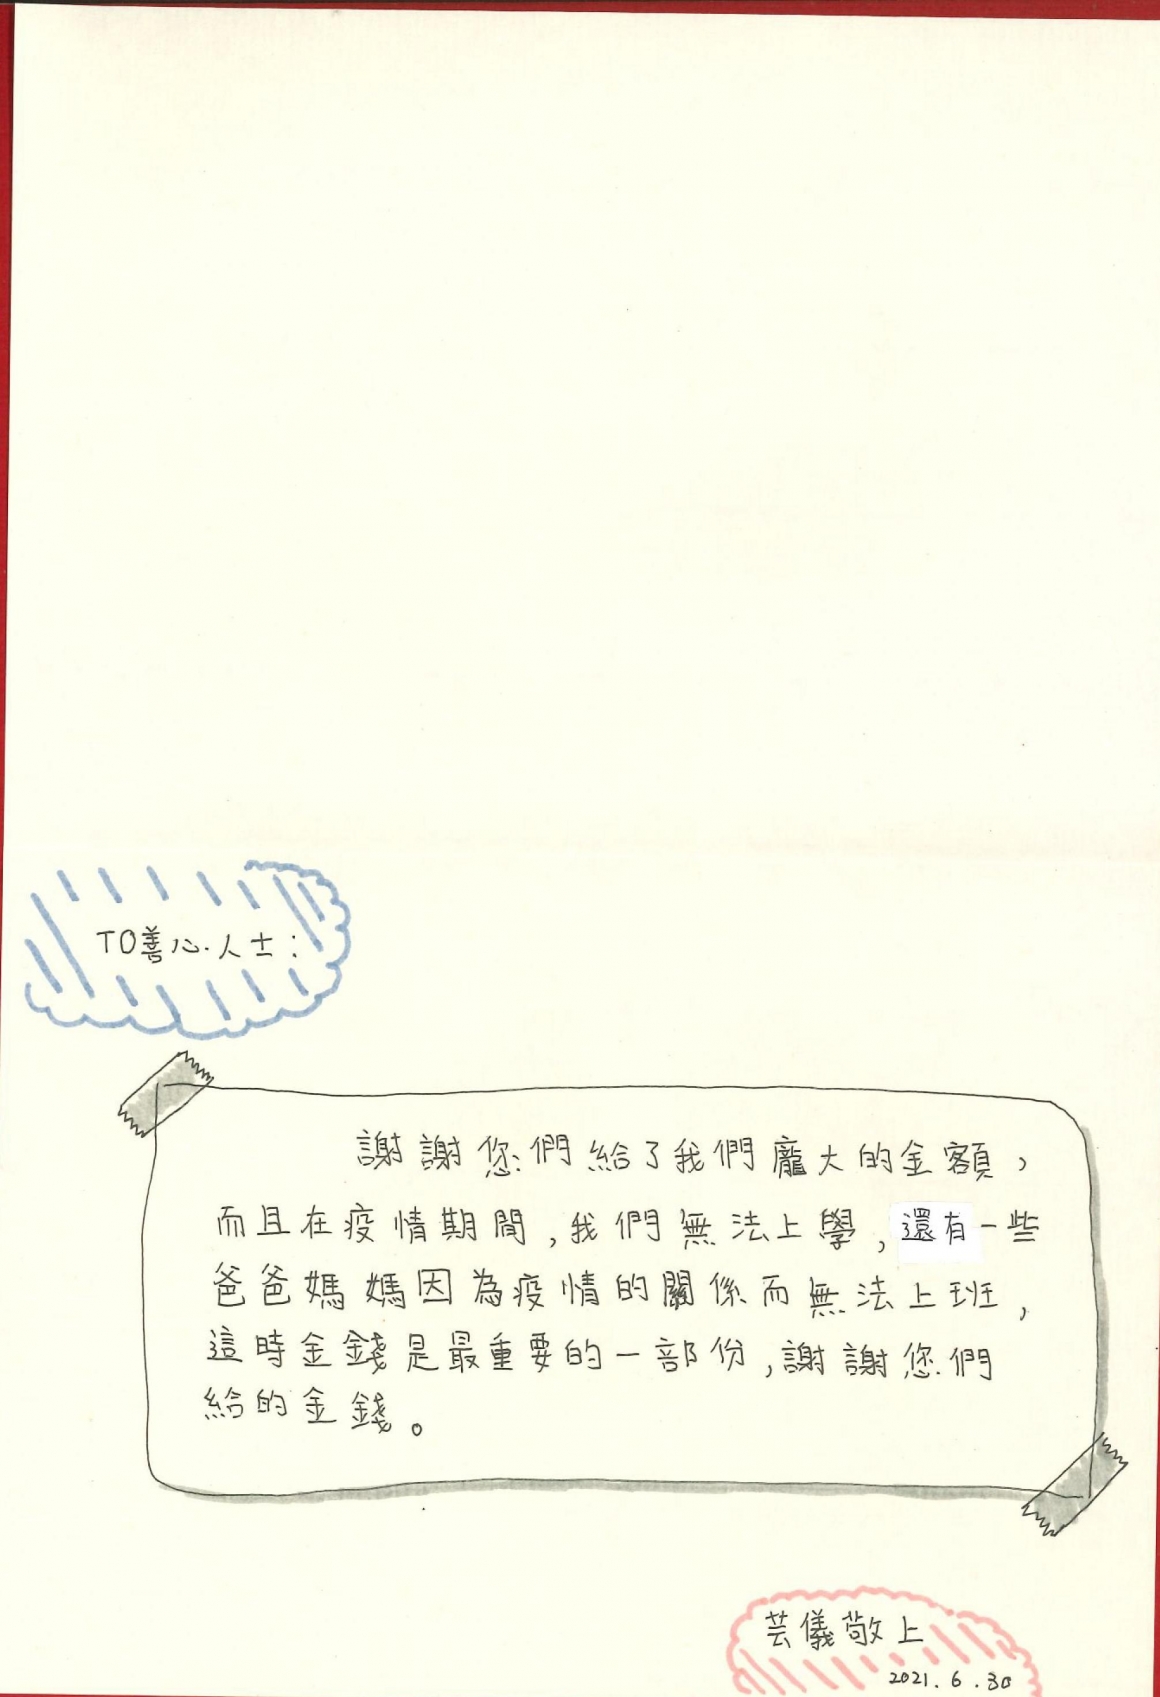 TO善心人士:
謝謝您們給了我們龐大的金額,
而且在疫情期間,我們無法上學,還有一些
爸爸媽媽因為疫情的關係而無法上班,
這時金錢是最重要的一部份,謝謝您們
給的金錢。
芸儀敬上
2021.6.30